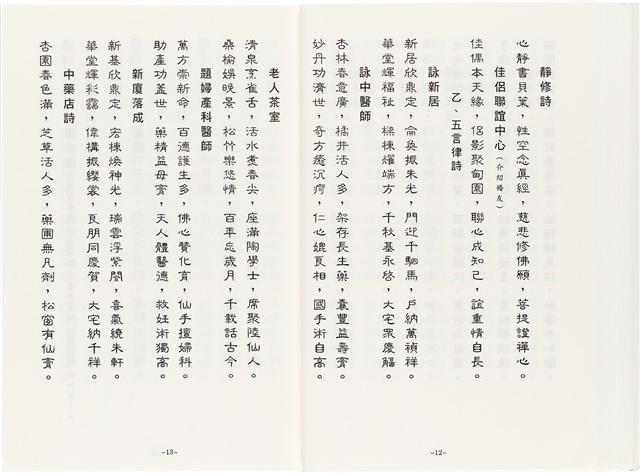 靜修詩
心靜書貝葉，性空念眞經，慈悲修佛願，菩提證禪心。
佳侶聯誼中心（介紹婚友）
佳偶本天緣，侶影聚甸園，聯心成知己，誼重情自長。
乙、五言律詩
詠新居
新居欣鼎定，侖奐振朱光，門迎千駟馬，戶納萬禎祥。
華堂輝福祉，樑棟耀端方，千秋基永啓，大宅眾慶觴。
詠中醫師
杏林春意廣，橘井活人多，架存長生藥，囊豐益壽膏。
妙丹功濟世，奇方癒沉疴，仁心媲良相，國手術自高。
-12-
老人茶室
清泉烹雀舌，活水煮春尖，座滿陶學士，席聚陸仙人。
桑榆娛晚景，松竹樂悠情，百年忘歲月，千載話古今。
題婦產科醫師
萬方崇新命，百德護生多，佛心贊化育，仙手擅婦科。
助產功蓋世，藥精益母膏，天人體醫德，救妊術獨高。
新廈落成
新基欣鼎定，宏棟煥神光，瑞雲浮紫閣，喜氣繞朱軒。
華堂輝彩靄，偉構振纓裳，良朋同慶賀，大宅納千祥。
中藥店詩
杏園春色滿，芝草活人多，藥圃無凡劑，松窗有仙膏。
-13-